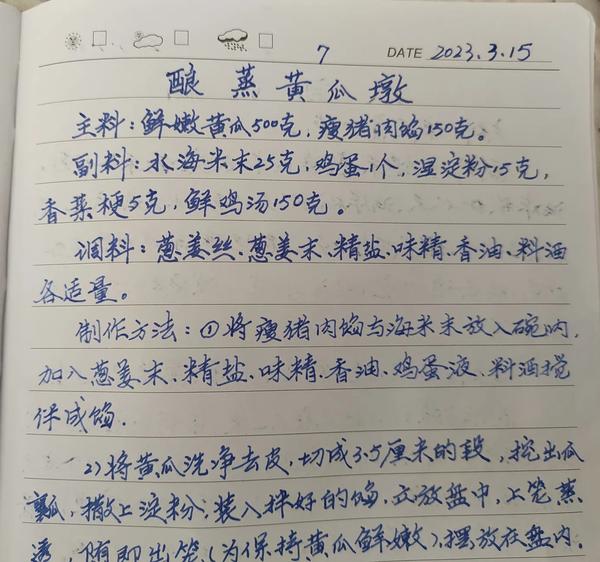 7 DATE 2023.3.15
酿蒸黄瓜墩
主料:鲜嫩黄瓜500克,瘦猪肉馅150克。
副料:水海米末25克,鸡蛋1个,湿淀粉15克,
香菜梗5克,鲜鸡汤150克。
调料:葱姜丝、葱姜末、精盐、味精、香油、料酒
各适量。
制作方法:①将瘦猪肉馅与海米末放入碗内,
加入葱姜末、精盐、味精、香油、鸡蛋液、料酒搅
伴成馅.
2)将黄瓜洗净去皮,切成3.5厘米的段,挖出瓜
瓤,撒上淀粉;装入拌好的馅,立放盘中,上笼蒸
透,随即出笼(为保持黄瓜鲜嫩),摆放在盘内.